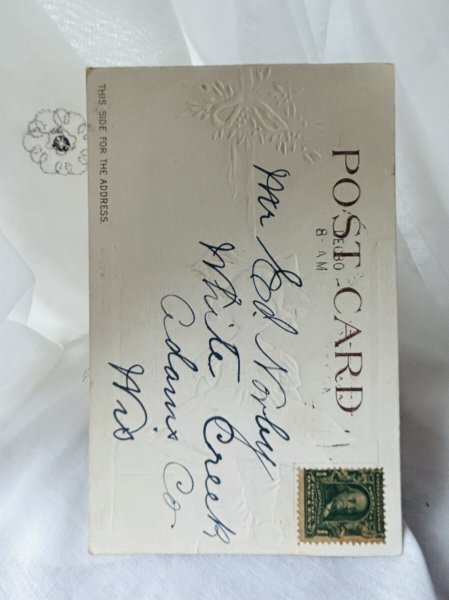 POST CARD
8 AM
Mr Ed. Norby
White Creek
Adams Co.
Wis
THIS SIDE FOR THE ADDRESS.